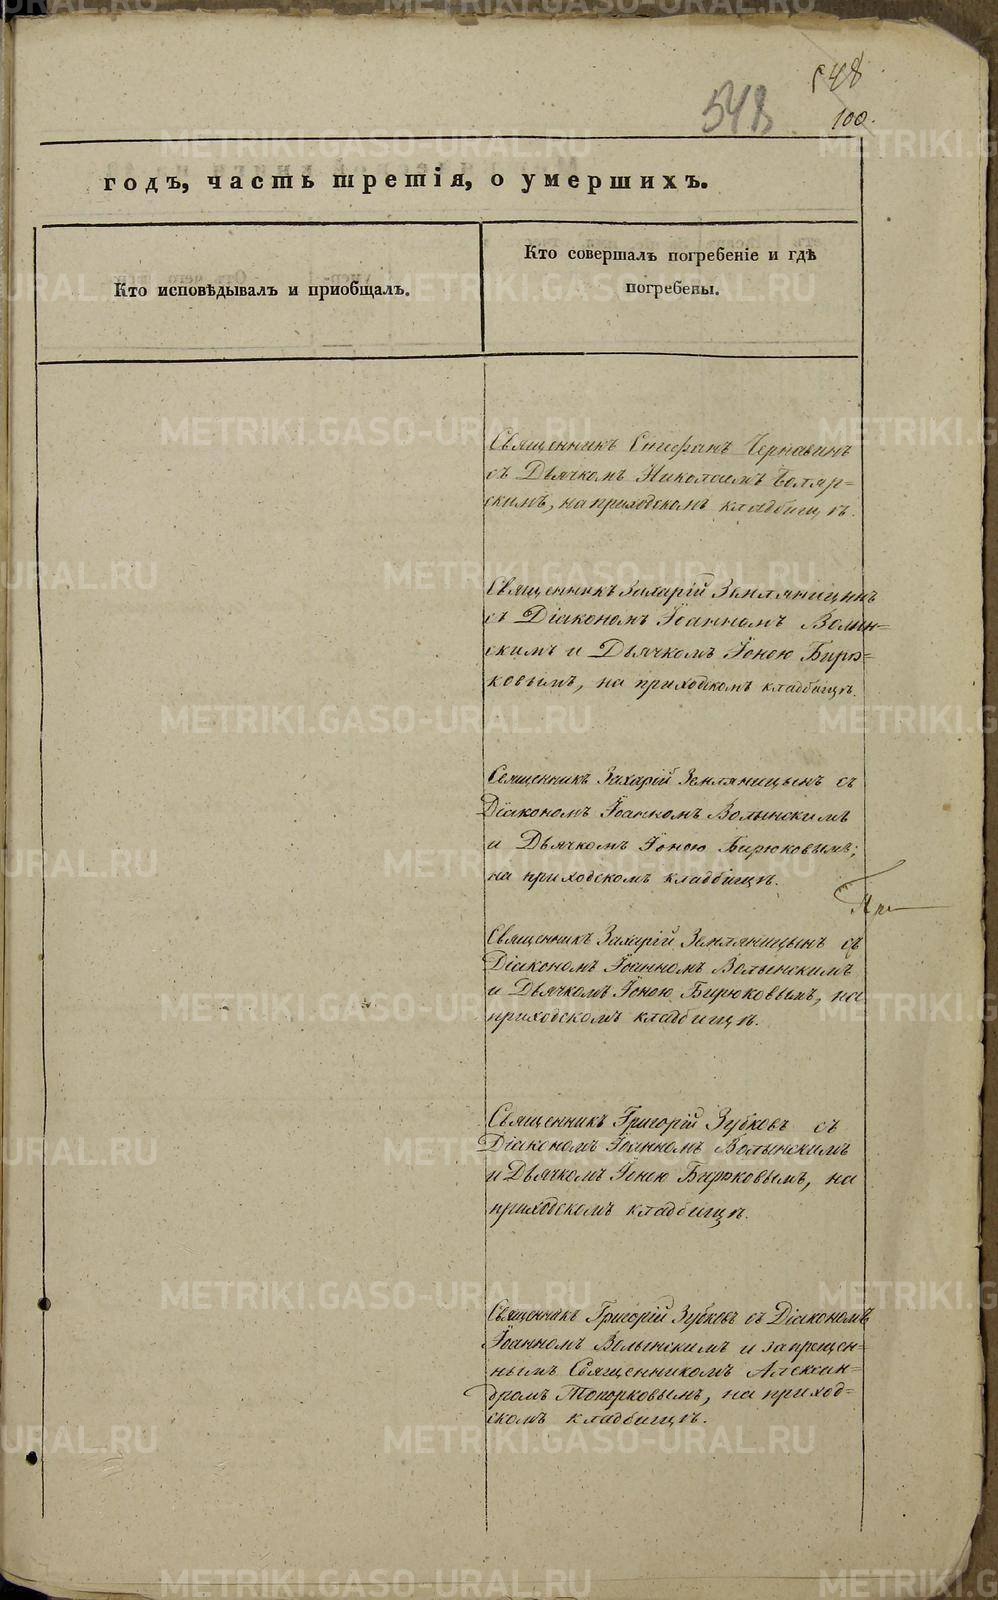 548
548
100.
годъ, часть третія, о умершихъ.
Кто исповѣдывалъ и приобщалъ.
Кто совершалъ погребеніе и гдѣ
погребены.
Священникъ Стефанъ Чернавинъ
съ Дьячкомъ Николаемъ Боляр=
скимъ, на приходскомъ кладбищѣ.
Священникъ Захарій Земляницынъ
съ Діакономъ Іоанномъ Волын=
скимъ и Дьячкомъ Іоною Бирю=
ковымъ, на приходскомъ кладбищѣ.
Священникъ Захарій Земляницынъ съ
Діакономъ Іоанномъ Волынскимъ
и Дьячкомъ Іоною Бирюковымъ;
на приходскомъ кладбищѣ.
Священникъ Захарій Земляницынъ съ
Діакономъ Іоанномъ Волынскимъ
и Дьячкомъ Іоною Бирюковымъ, на
приходскомъ кладбищѣ.
Священникъ Григорій Зубковъ съ
Діакономъ Іоанномъ Волынскимъ
и Дьячкомъ Іоною Бирюковымъ, на
приходскомъ кладбищѣ.
Священникъ Григорій Зубковъ съ Діакономъ
Іоанномъ Волынскимъ и запрещен=
нымъ Священникомъ Алексан=
дромъ Топорковымъ, на приход=
скомъ кладбищѣ.
METRIKI.GASO-URAL.RU